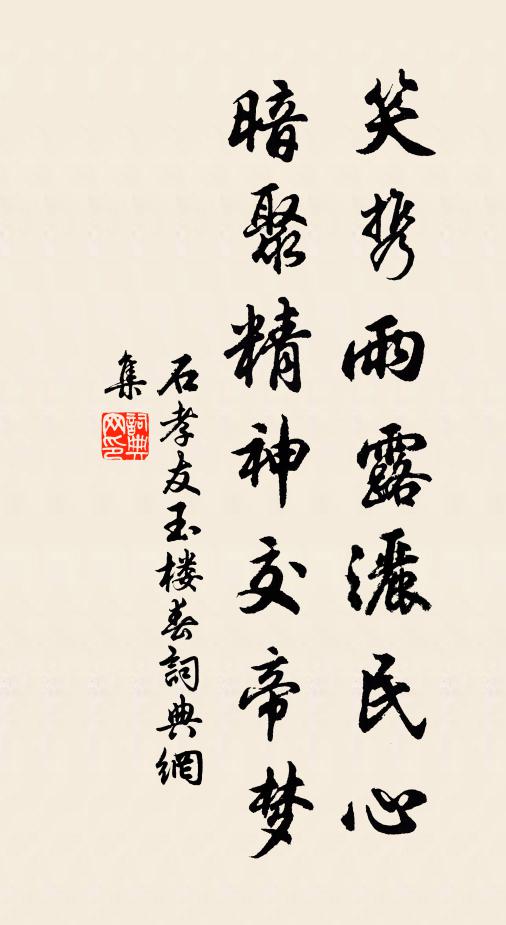 笑携雨露灑民心
暗聚精神交帝梦
石孝友玉楼春詞典網
集
詞典
网印